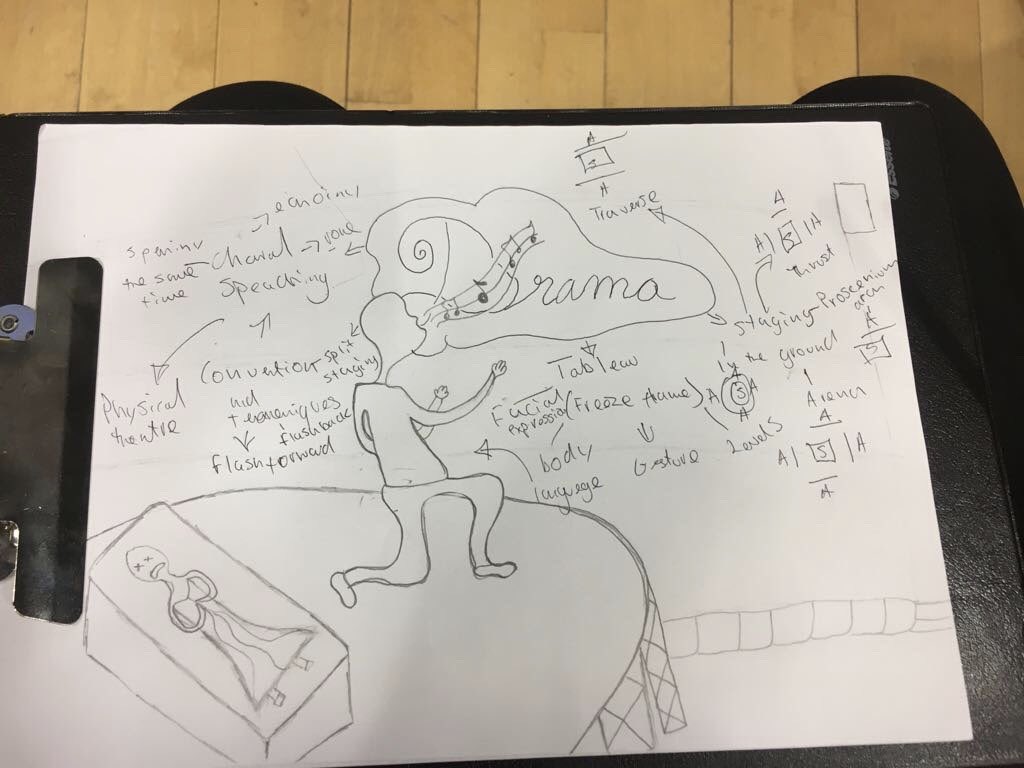 A
S
A
Traverse
A
A| S |A
thrust
Drama
staging-Proscenium
arch
A
S
in the ground
A S A
A
Arena
A
A| S |A
A
Levels
Tableau
(Freeze frame)
Facial
expression
body
language
Gesture
the same
time
Choral
Speaching
Physical
theatre
split
staging
flashback
flashforward